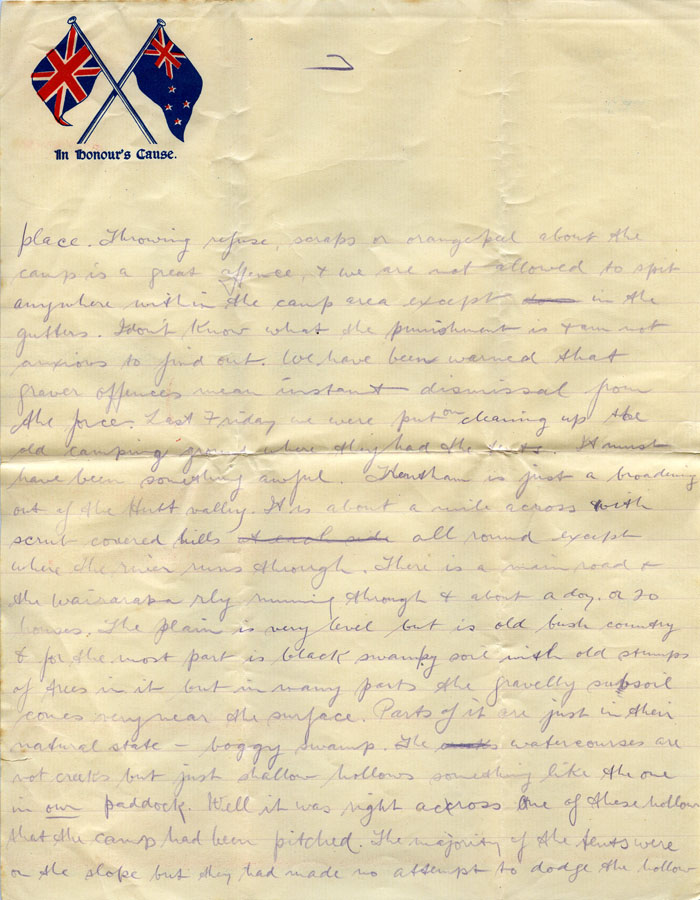 In Honour's Cause.
place. Throwing refuse, scraps or orangepeel about the
camp is a great offence, & we are not allowed to spit
anywhere within the camp area except in the
gutters. I don't know what the punishment is & am not
anxious to find out. We have been warned that
graver offences mean instant dismissal from
the force. Last Friday we were put on cleaning up the
old camping ground where they had the tents. It must
have been something awful. Trentham is just a broadening
out of the Hutt valley. It is about a mile across with
scrub covered hills at each side all round except
where the river runs through. There is a main road &
the Wairarapa rly running through & about a doz. or 20
houses. The plain is very level but is old bush country
& for the most part is black swampy soil with old stumps
of trees in it but in many parts the gravelly subsoil
comes very near the surface. Parts of it are just in their
natural state - boggy swamp. The watercourses are
not creeks but just shallow hollows something like the one
in our paddock. Well it was right across one of these hollows
that the camp had been pitched. The majority of the tents were
on the slope but they had made no attempt to dodge the hollow